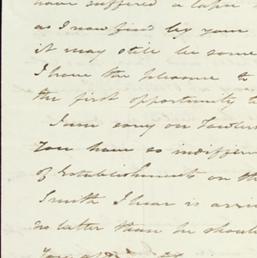 have suffered a
as I now find by your
it may still be some
I have the pleasure to
the first opportunity
I am sorry on
You have so indiffer
of Establishments on the
Smith I hear is arri
no later than he should